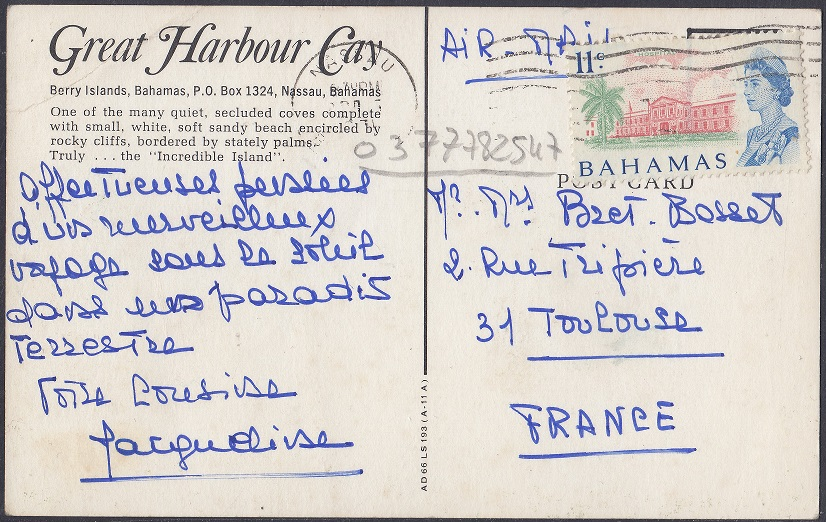 Great Harbour Cay
Berry Islands, Bahamas, P.O. Box 1324, Nassau, Bahamas
One of the many quiet, secluded coves complete
with small, white, soft sandy beach encircled by
rocky cliffs, bordered by stately palms.
Truly . . . the "Incredible Island".
0377782547
Affectueuses pensées
d'un merveilleux
voyage sous le soleil
dans un paradis
Terrestre
Votre Cousine
Jacqueline
AD 66 LS 193 (A-11 A)
NASSAU
AIR. MAIL
11c
HOSPITAL
BAHAMAS
POST CARD
Mr. Mrs Bret. Bosset
2. Rue Tripière
31 Toulouse
FRANCE